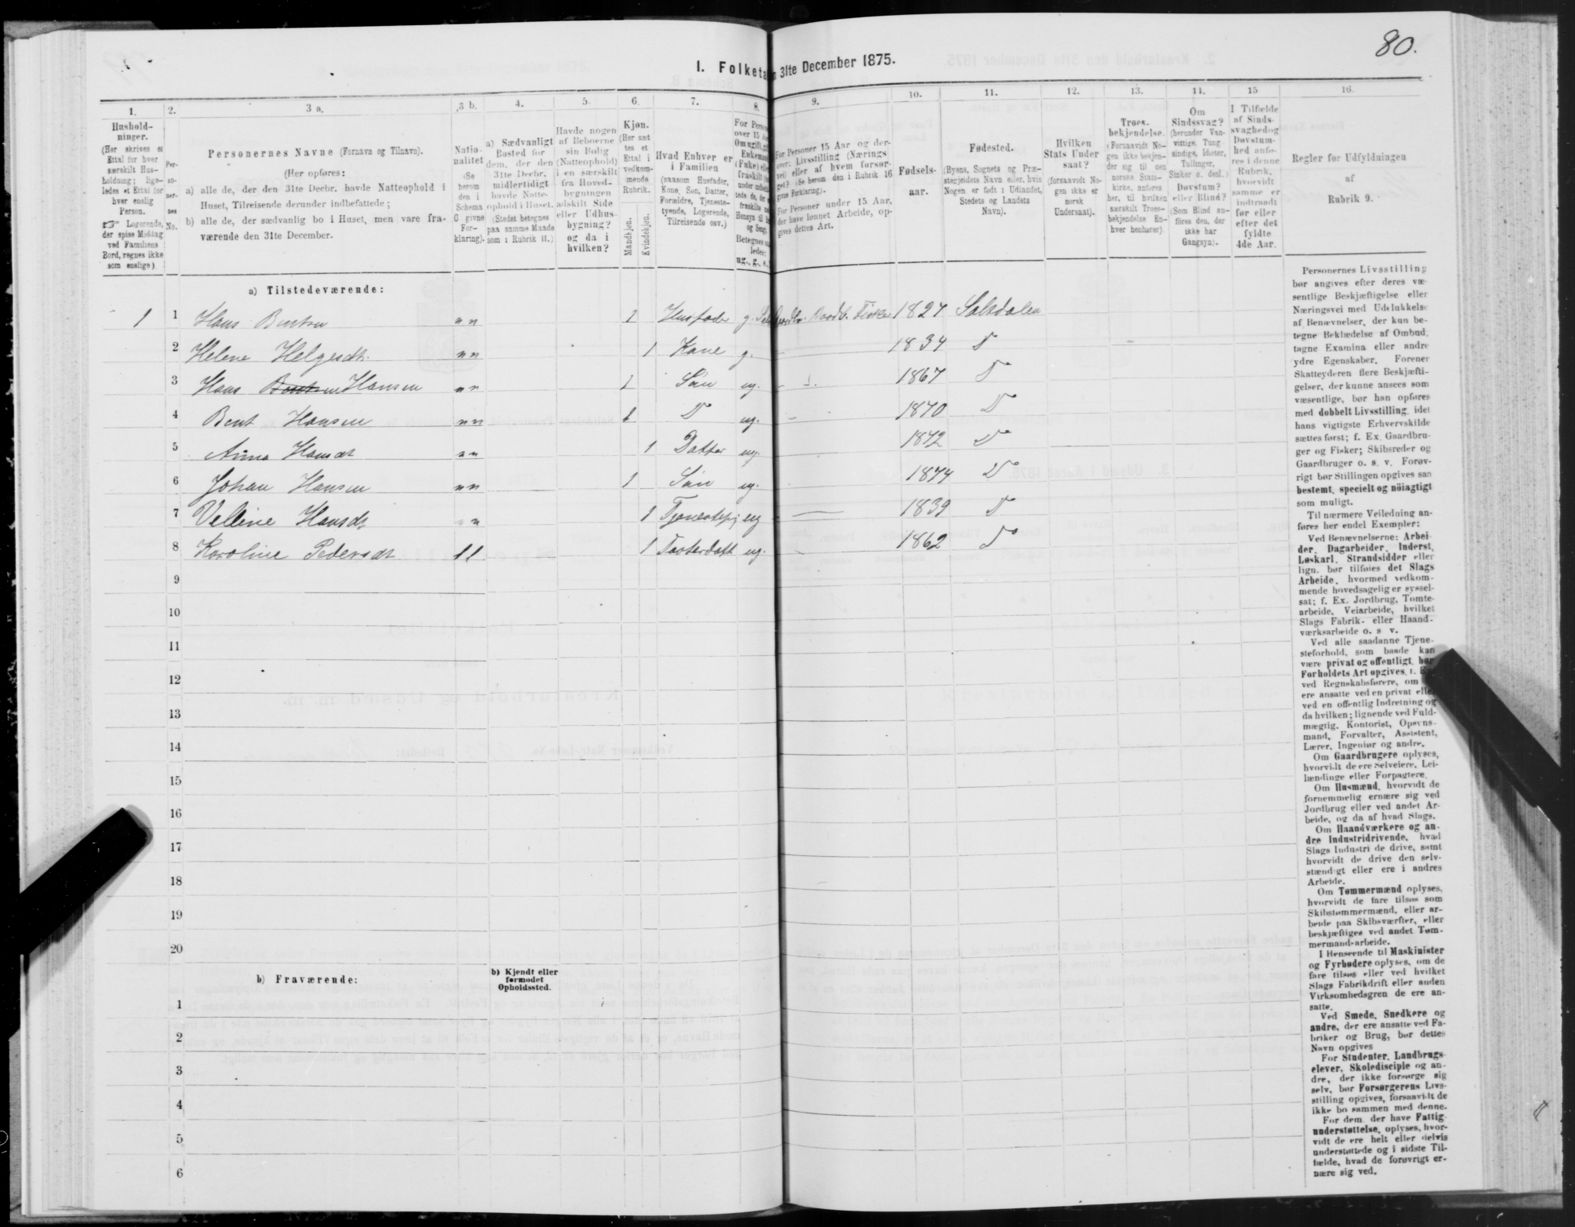 80.
I. Folketa
n 31te December 1875.
1.
2.
3 a.
3 b.
4.
5.
6.
7.
8.
9.
10.
11.
12.
13.
14.
15
16.
Hushold-
ninger.
(Her skrives et
Ettal for hver
særskilt Hus-
holdning; lige-
ledes et Ettal for
hver enslig
Person.
☞ Logerende,
der spise Middag
ved Familiens
Bord, regnes ikke
som enslige)
Per-
so-
ner-
nes
No.
Personernes Navne (Fornavn og Tilnavn).
(Her opføres:
a) alle de, der den 31te Decbr. havde Natteophold i
Huset, Tilreisende derunder indbefattede;
b) alle de, der sædvanlig bo i Huset, men vare fra-
værende den 31te December.
Natio-
nalitet
(Se
herom
den i
Schema
0 givne
For-
klaring).
a) Sædvanligt
Bosted for
dem, der den
31te Decbr.
midlertidigt
havde Natte-
ophold i Huset.
(Stedet betegnes
paa samme Maade
som i Rubrik 11.)
Havde nogen
af Beboerne
sin Bolig
(Natteophold)
i en særskilt
fra Hoved-
bygningen
adskilt Side
eller Udhus-
bygning?
og da i
hvilken?
Kjøn.
(Her sæt
tes et
Ettal i
vedkom-
mende
Rubrik.
Mandkjøn.
Kvindekjøn.
Hvad Enhver er
i Familien
(saasom Husfader,
Kone, Søn, Datter,
Forældre, Tjeneste-
tyende, Logerende,
Tilreisende osv.)
For Personer 15 Aar og der-
over: Livsstilling (Nærings
vei) eller af hvem forsør-
get? (Se herom den i Rubrik 16
givne Forklaring).
For Personer under 15 Aar,
der have lønnet Arbeide, op-
gives dettes Art.
Fødsels-
aar.
Fødested.
(Byens, Sognets og Præ-
stegjeldets Navn eller, hvis
Nogen er født i Udlandet,
Stedets og Landets
Navn).
Hvilken
Stats Under
saat?
(forsaavidt No-
gen ikke er
norsk
Undersaat).
Troes-
bekjendelse.
(Forsaavidt No-
gen ikke bekjen-
der sig til den
norske Stats-
kirke, anføres
her, til hvilken
særskilt Troes-
bekjendelse En-
hver henhører).
Om
Sindssvag?
(herunder Van-
vittige, Tung
sindige, Idioter,
Tullinger,
Sinker o. desl.)
Døvstum?
eller Blind?
(Som Blind an-
føres den, der
ikke har
Gangsyn).
I Tilfælde
af Sinds-
svaghed og
Døvstum-
hed anfø-
res i denne
Rubrik,
hvorvidt
samme er
indtraadt
før eller
efter det
fyldte
4de Aar.
Regler for Udfyldningen
af
Rubrik 9.
a) Tilstedeværende:
1 1 Hans Bentsen nn 1 Husfader g. 1827 Saltdalen
2 Helene Helgesdt. nn 1 Kone g. 1834 D
3 Hans Hansen nn 1 Søn ug. 1867 D
4 Bent Hansen nn 1 D ug. 1870 D
5 Anna Hansdt nn 1 Datter ug. 1872 D
6 Johan Hansen nn 1 Søn ug. 1874 D
7 Hansdt nn 1 ug 1839 D
8 Karoline Pedersdt 11 1 ug. 1862 D
9
10
11
12
13
14
15
16
17
18
19
20
b) Fraværende:
b) Kjendt eller
formodet
Opholdssted.
1
2
3
4
5
6
Personernes Livsstilling
bør angives efter deres væ-
sentlige Beskjæftigelse eller
Næringsvei med Udelukkelse
af Benævnelser, der kun be-
tegne Beklædelse af Ombud,
tagne Examina eller andre
ydre Egenskaber. Forener
Skatteyderen flere Beskjæfti-
gelser, der kunne ansees som
væsentlige, bør han opføres
med dobbelt Livsstilling, idet
hans vigtigste Erhvervskilde
sættes først; f. Ex. Gaardbru-
ger og Fisker; Skibsreder og
Gaardbruger o. s. v. Forøv-
rigt bør Stillingen opgives saa
bestemt, specielt og nöiagtigt
som muligt.
Til nærmere Veiledning an-
føres her endel Exempler:
Ved Benævnelserne: Arbei-
der, Dagarbeider, Inderst,
Løskarl, Strandsidder eller
lign. bør tilføies det Slags
Arbeide, hvormed vedkom-
mende hovedsagelig er syssel-
sat; f. Ex. Jordbrug, Tomte-
arbeide, Veiarbeide, hvilket
Slags Fabrik- eller Haand-
værksarbeide o. s v.
Ved alle saadanne Tjene-
steforhold, som baade kan
være privat og offentligt, bør
Forholdets Art opgives, f.
ved Regnskabsførere, om
ere ansatte ved en privat eller
ved en offentlig Indretning og
da hvilken; lignende ved Fuld-
mægtig, Kontorist, Opsyns-
mand, Forvalter, Assistent,
Lærer, Ingeniør og andre.
Om Gaardbrugere oplyses,
hvorvidt de ere Selveiere, Lei-
lændinge eller Forpagtere.
Om Husmænd, hvorvidt de
fornemmelig ernære sig ved
Jordbrug eller ved andet Ar-
beide, og da af hvad Slags.
Om Haandværkere og an-
dre Industridrivende, hvad
Slags Industri de drive, samt
hvorvidt de drive den selv-
stændigt eller ere i andres
Arbeide.
Om Tømmermænd oplyses,
hvorvidt de fare tilsøs som
Skibstømmermænd, eller ar-
beide paa Skibsværfter, eller
beskjæftiges ved andet Tøm-
mermandsarbeide.
I Henseende til Maskinister
og Fyrbødere oplyses, om de
fare tilsøs eller ved hvilket
Slags Fabrikdrift eller anden
Virksomhedsgren de ere an-
satte.
Ved Smede, Snedkere og
andre, der ere ansatte ved Fa-
briker og Brug, bør dettes
Navn opgives
For Studenter, Landbrugs-
elever, Skoledisciple og an-
dre, der ikke forsørge sig
selv, bør Forsørgerens Livs-
stilling opgives, forsaavidt de
ikke bo sammen med denne.
For dem der have Fattig-
understøttelse, oplyses, hvor-
vidt de ere helt eller delvis
understøttede og i sidste Til-
fælde, hvad de forøvrigt er-
nære sig ved.